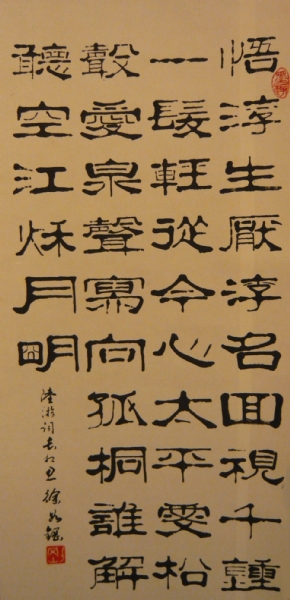 悟浮生厭浮名回視千鍾
一髮輕從今心太平愛松
聲愛泉聲寫向孤桐誰解
聽空江秋月明
陸游詞長相思 徐